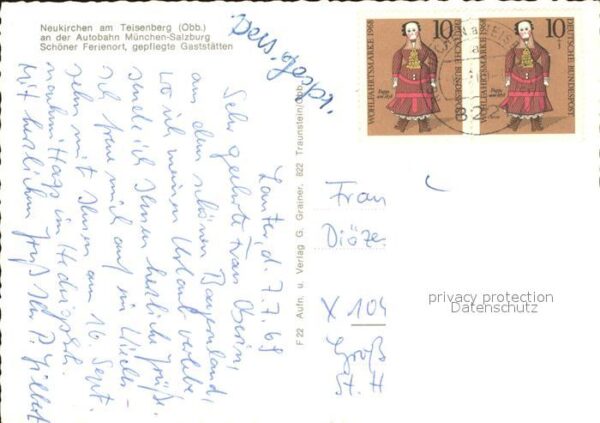 Neukirchen am Teisenberg (Obb.)
an der Autobahn München-Salzburg
Schöner Ferienort, gepflegte Gaststätten
Pers. gespr.
Lauter, d. 7.7.69
Sehr geehrte Frau Oberin,
aus dem schönen Bayernland,
wo ich meinen Urlaub verlebe
sende ich Ihnen herzliche Grüße.
Ich freue mich auf ein
sehn mit Ihnen am 16. Sept.
nachmittags im
Mit herzlichem Gruß Ihr P.
F 22 Aufn. u. Verlag G. Grainer, 822 Traunstein/Obb.
10
WOHLFAHRTSMARKE 1968
DEUTSCHE BUNDESPOST
10
WOHLFAHRTSMARKE 1968
DEUTSCHE BUNDESPOST
822
Frau
Diöze
X 104
Groß
St. H
privacy protection
Datenschutz